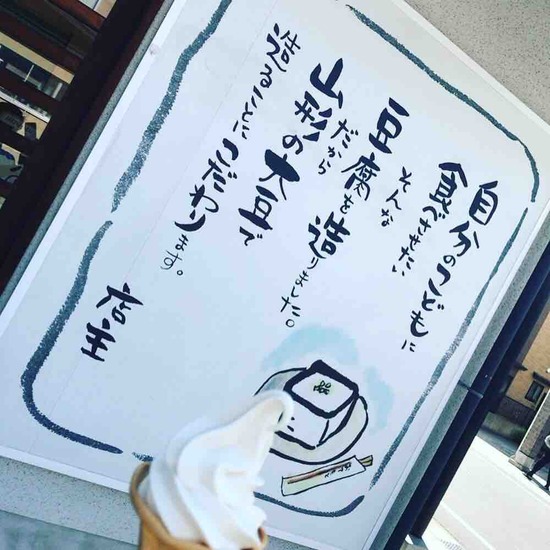 自分のこどもに
食べさせたい
そんな
豆腐を造りました。
だから
山形の大豆で
造ることにこだわります。
店主